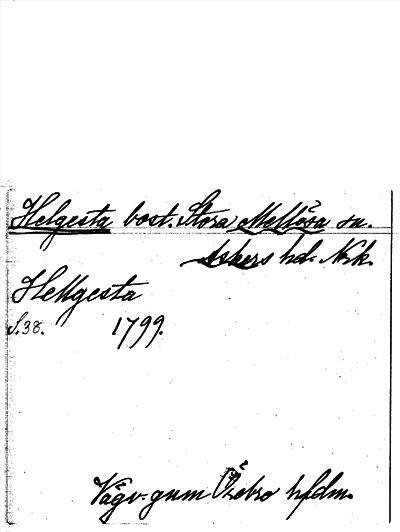 Helgesta bost. Stora Mellösa sn.
Askers hd. Nrk.
Hellgesta
S.38. 1799.
Vägv. gm Örebro hfdm.